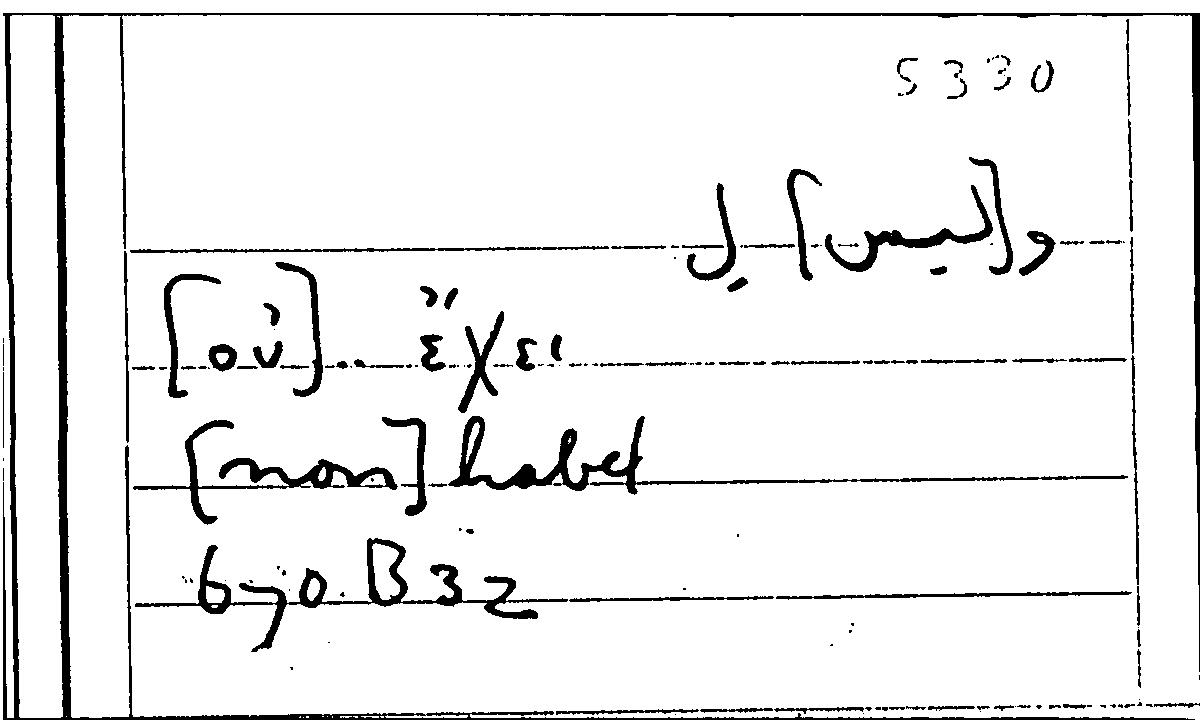 5330
و[ليس] ل.
[οὐ].. ἔχει
[non] habet
670. B 32